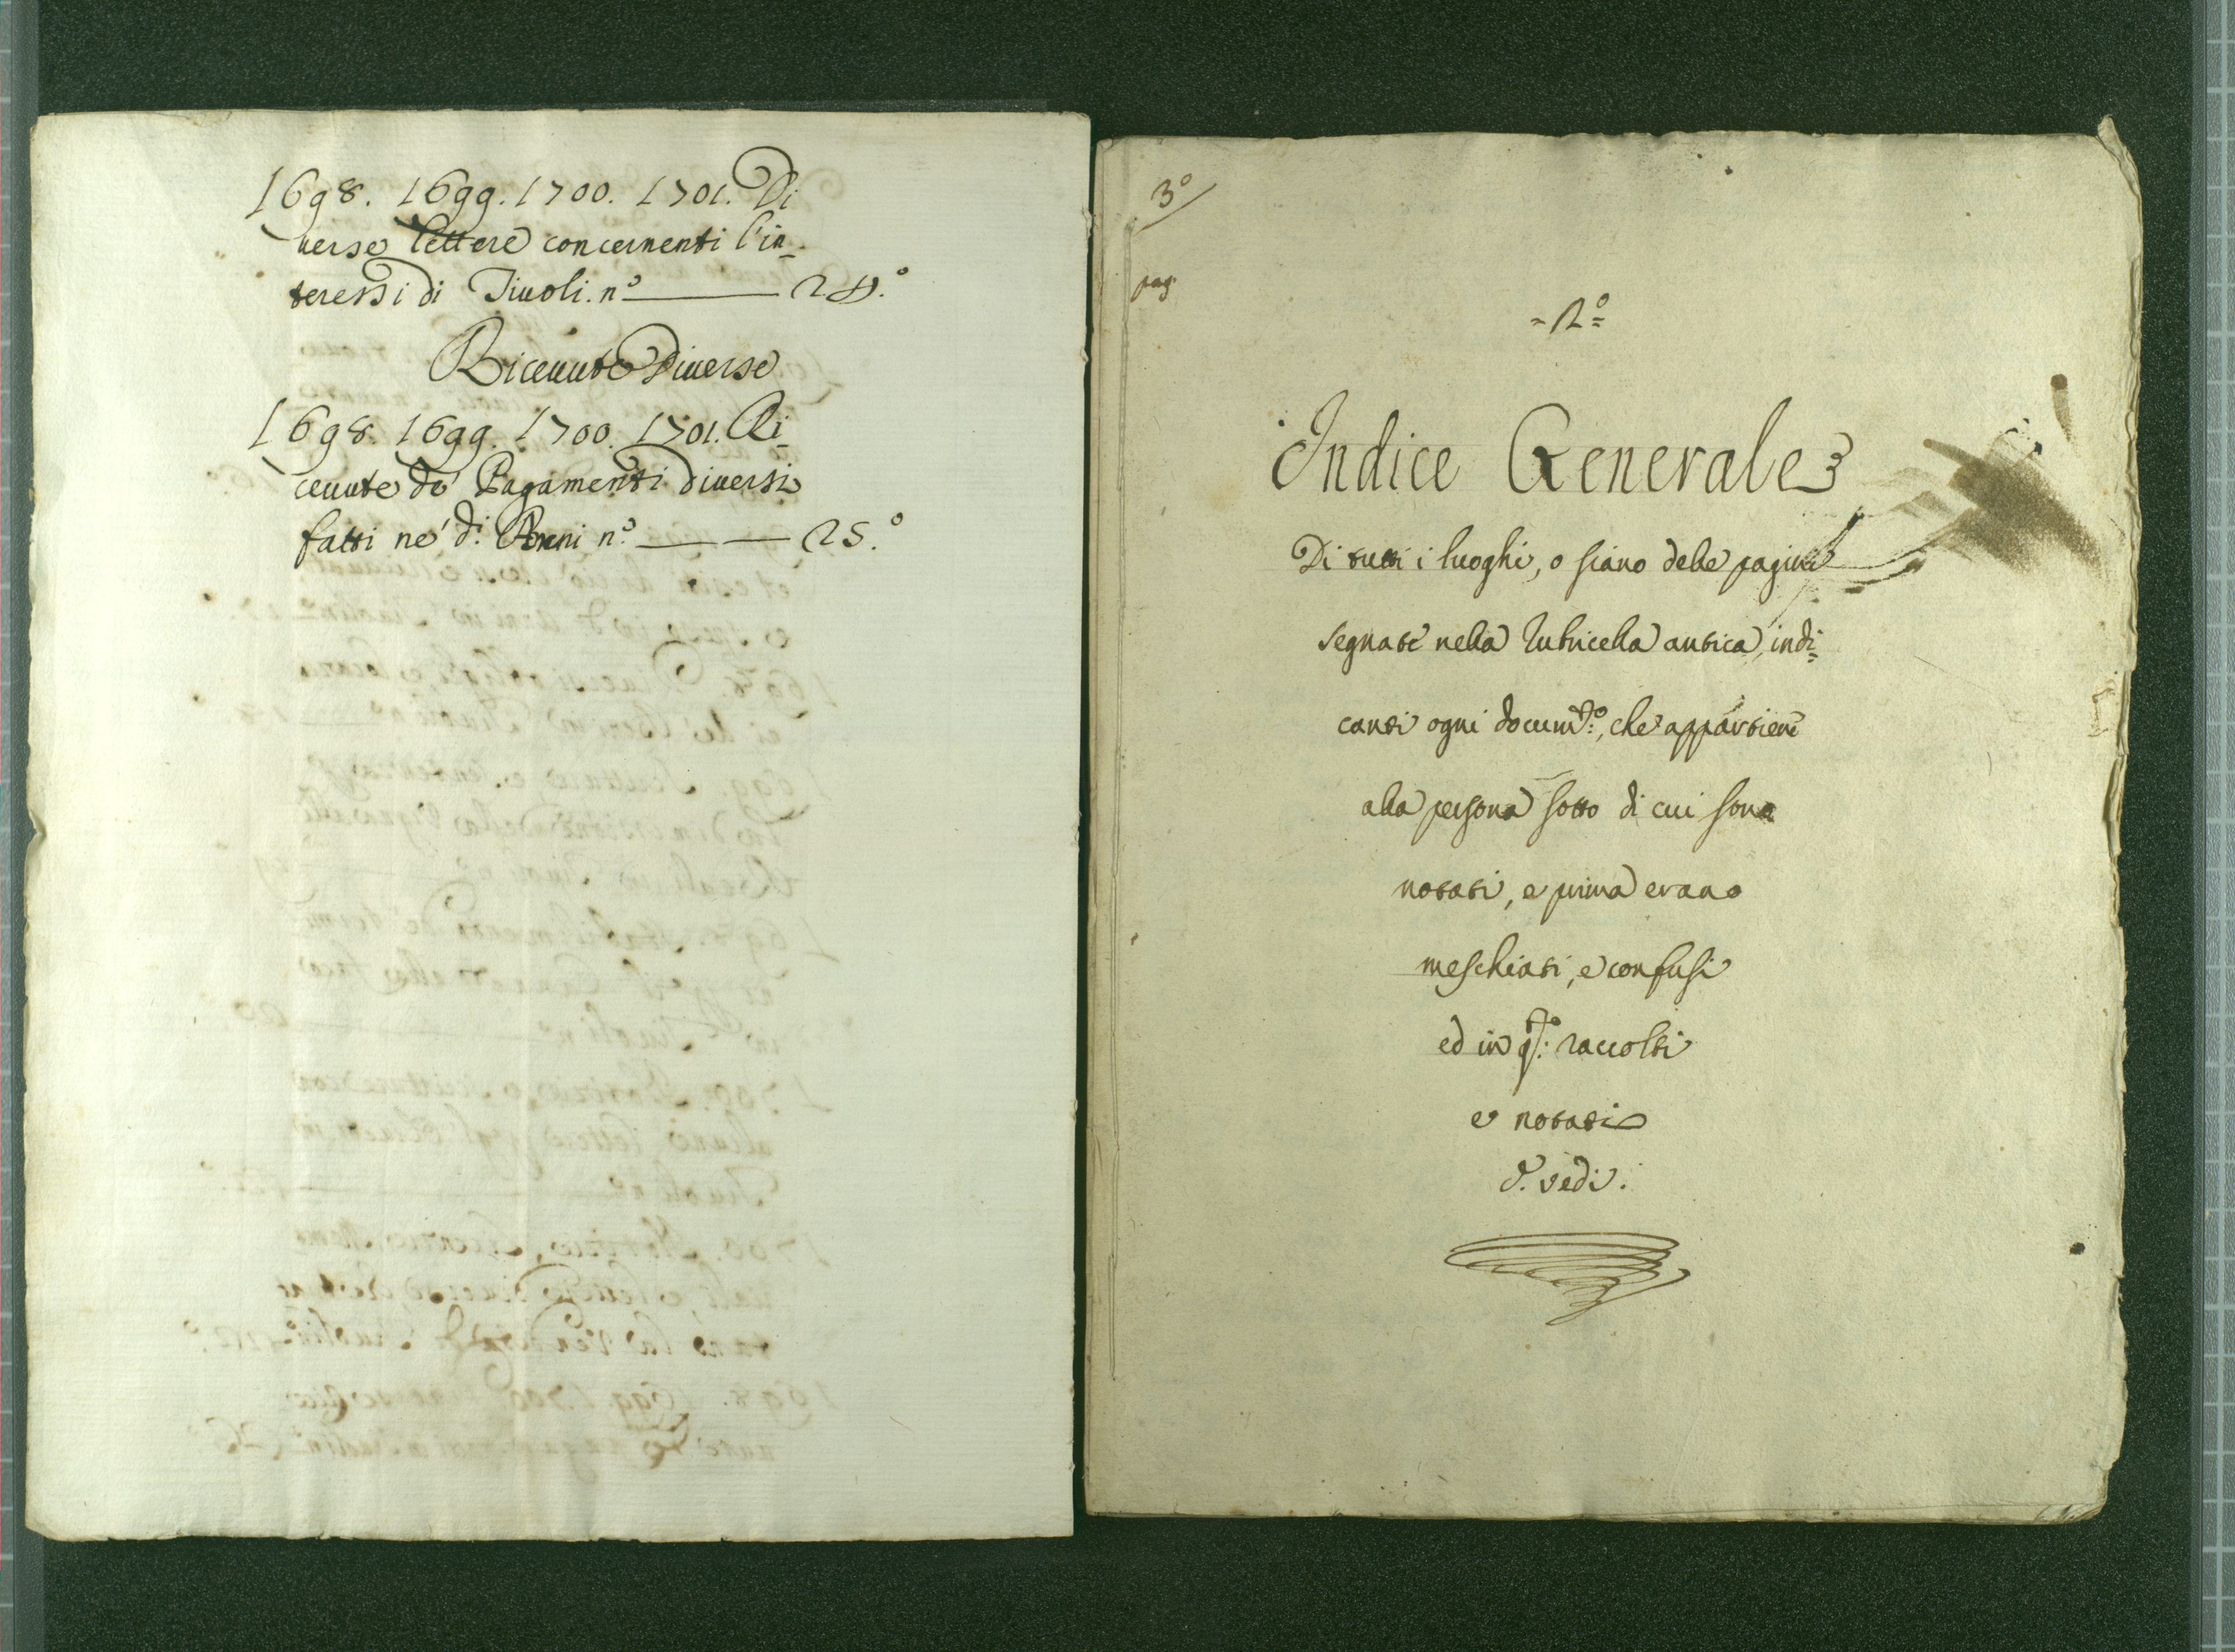 1698. 1699. 1700. 1701. Di
uerse lettere concernenti l'in-
teressi di Tiuoli. n.° 24.°
Riceuute Diuerse
1698. 1699. 1700. 1701. Ri-
ceuute de Pagamenti diuersi
fatti ne' d.i Anni n.° 25.°
3°
pag.
= 2° =
Indice Generale
Di tutti i luoghi, o siano delle pagine
segnate nella Rubricella antica, indi=
canti ogni docum.to, che appartiene
alla persona sotto di cui sono
notati, e prima erano
meschiati, e confusi
ed in q.to raccolti
e notati
vedi.